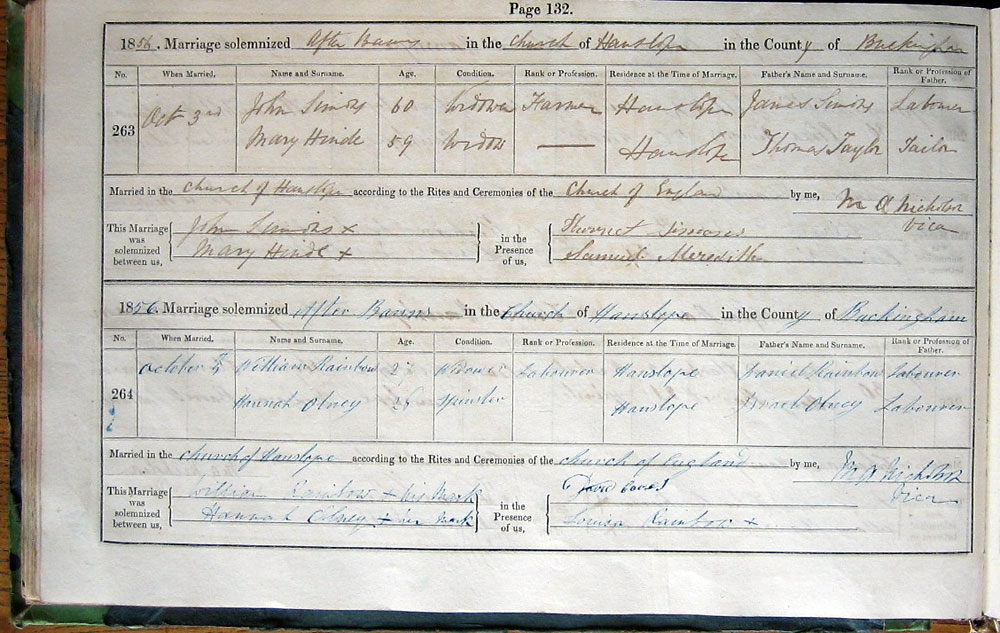 Page 132.
1856. Marriage solemnized After Banns in the Church of Hanslope in the County of Buckingham
No. When Married. Name and Surname. Age. Condition. Rank or Profession. Residence at the Time of Marriage. Father's Name and Surname. Rank or Profession of Father.
263 Oct 3rd John Simons 60 Widower Farmer Hanslope James Simons Labourer
Mary Hinde 59 Widow — Hanslope Thomas Taylor Tailor
Married in the Church of Hanslope according to the Rites and Ceremonies of the Church of England by me, M A Nicholson
Vicar
This Marriage was solemnized between us, John Simons x in the Presence of us, Harriet Simons
Mary Hinde x Samuel Meredith
1856. Marriage solemnized After Banns in the Church of Hanslope in the County of Buckingham
No. When Married. Name and Surname. Age. Condition. Rank or Profession. Residence at the Time of Marriage. Father's Name and Surname. Rank or Profession of Father.
264 October William Rainbow Widower Labourer Hanslope Daniel Rainbow Labourer
Hannah Olney 26 Spinster Hanslope Olney Labourer
Married in the Church of Hanslope according to the Rites and Ceremonies of the Church of England by me, M A Nicholson
Vicar
This Marriage was solemnized between us, William Rainbow + his Mark in the Presence of us,
Hannah Olney + her Mark Louisa Rainbow x